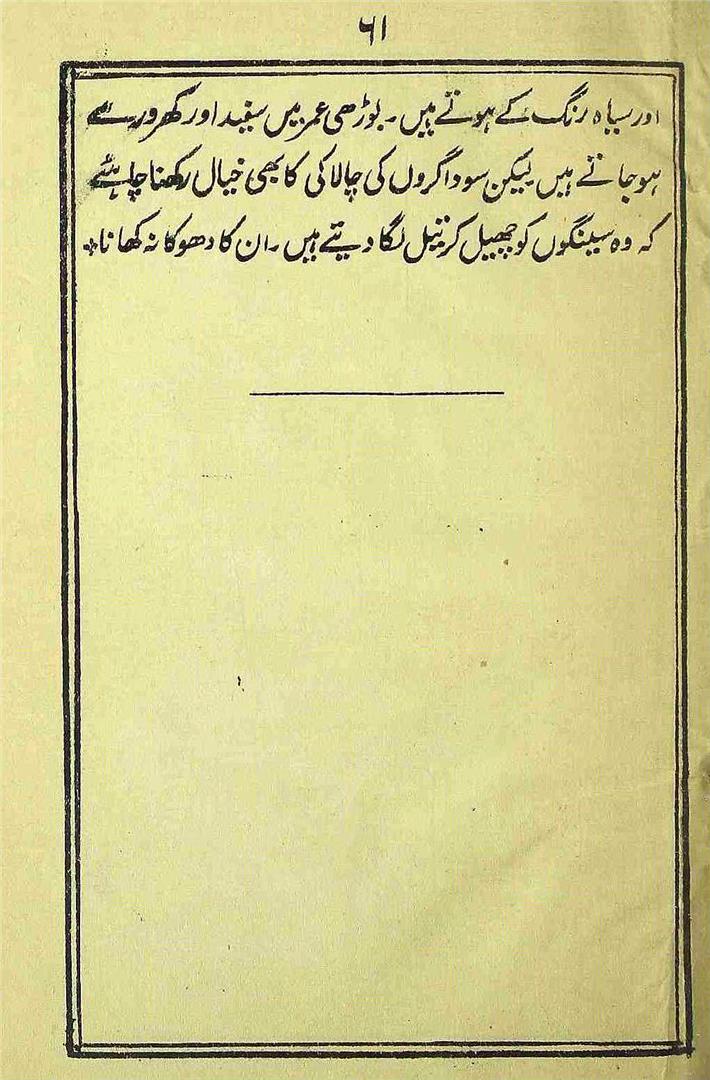 ۶۱
اور سیاہ رنگ کے ہوتے ہیں۔ بوڑھی عمر میں سفید اور کھرورے
ہو جاتے ہیں لیکن سوداگروں کی چالاکی کا بھی خیال رکھنا چاہئے
کہ وہ سینگوں کو چھیل کر تیل لگا دیتے ہیں۔ ان کا دھوکا نہ کھانا*